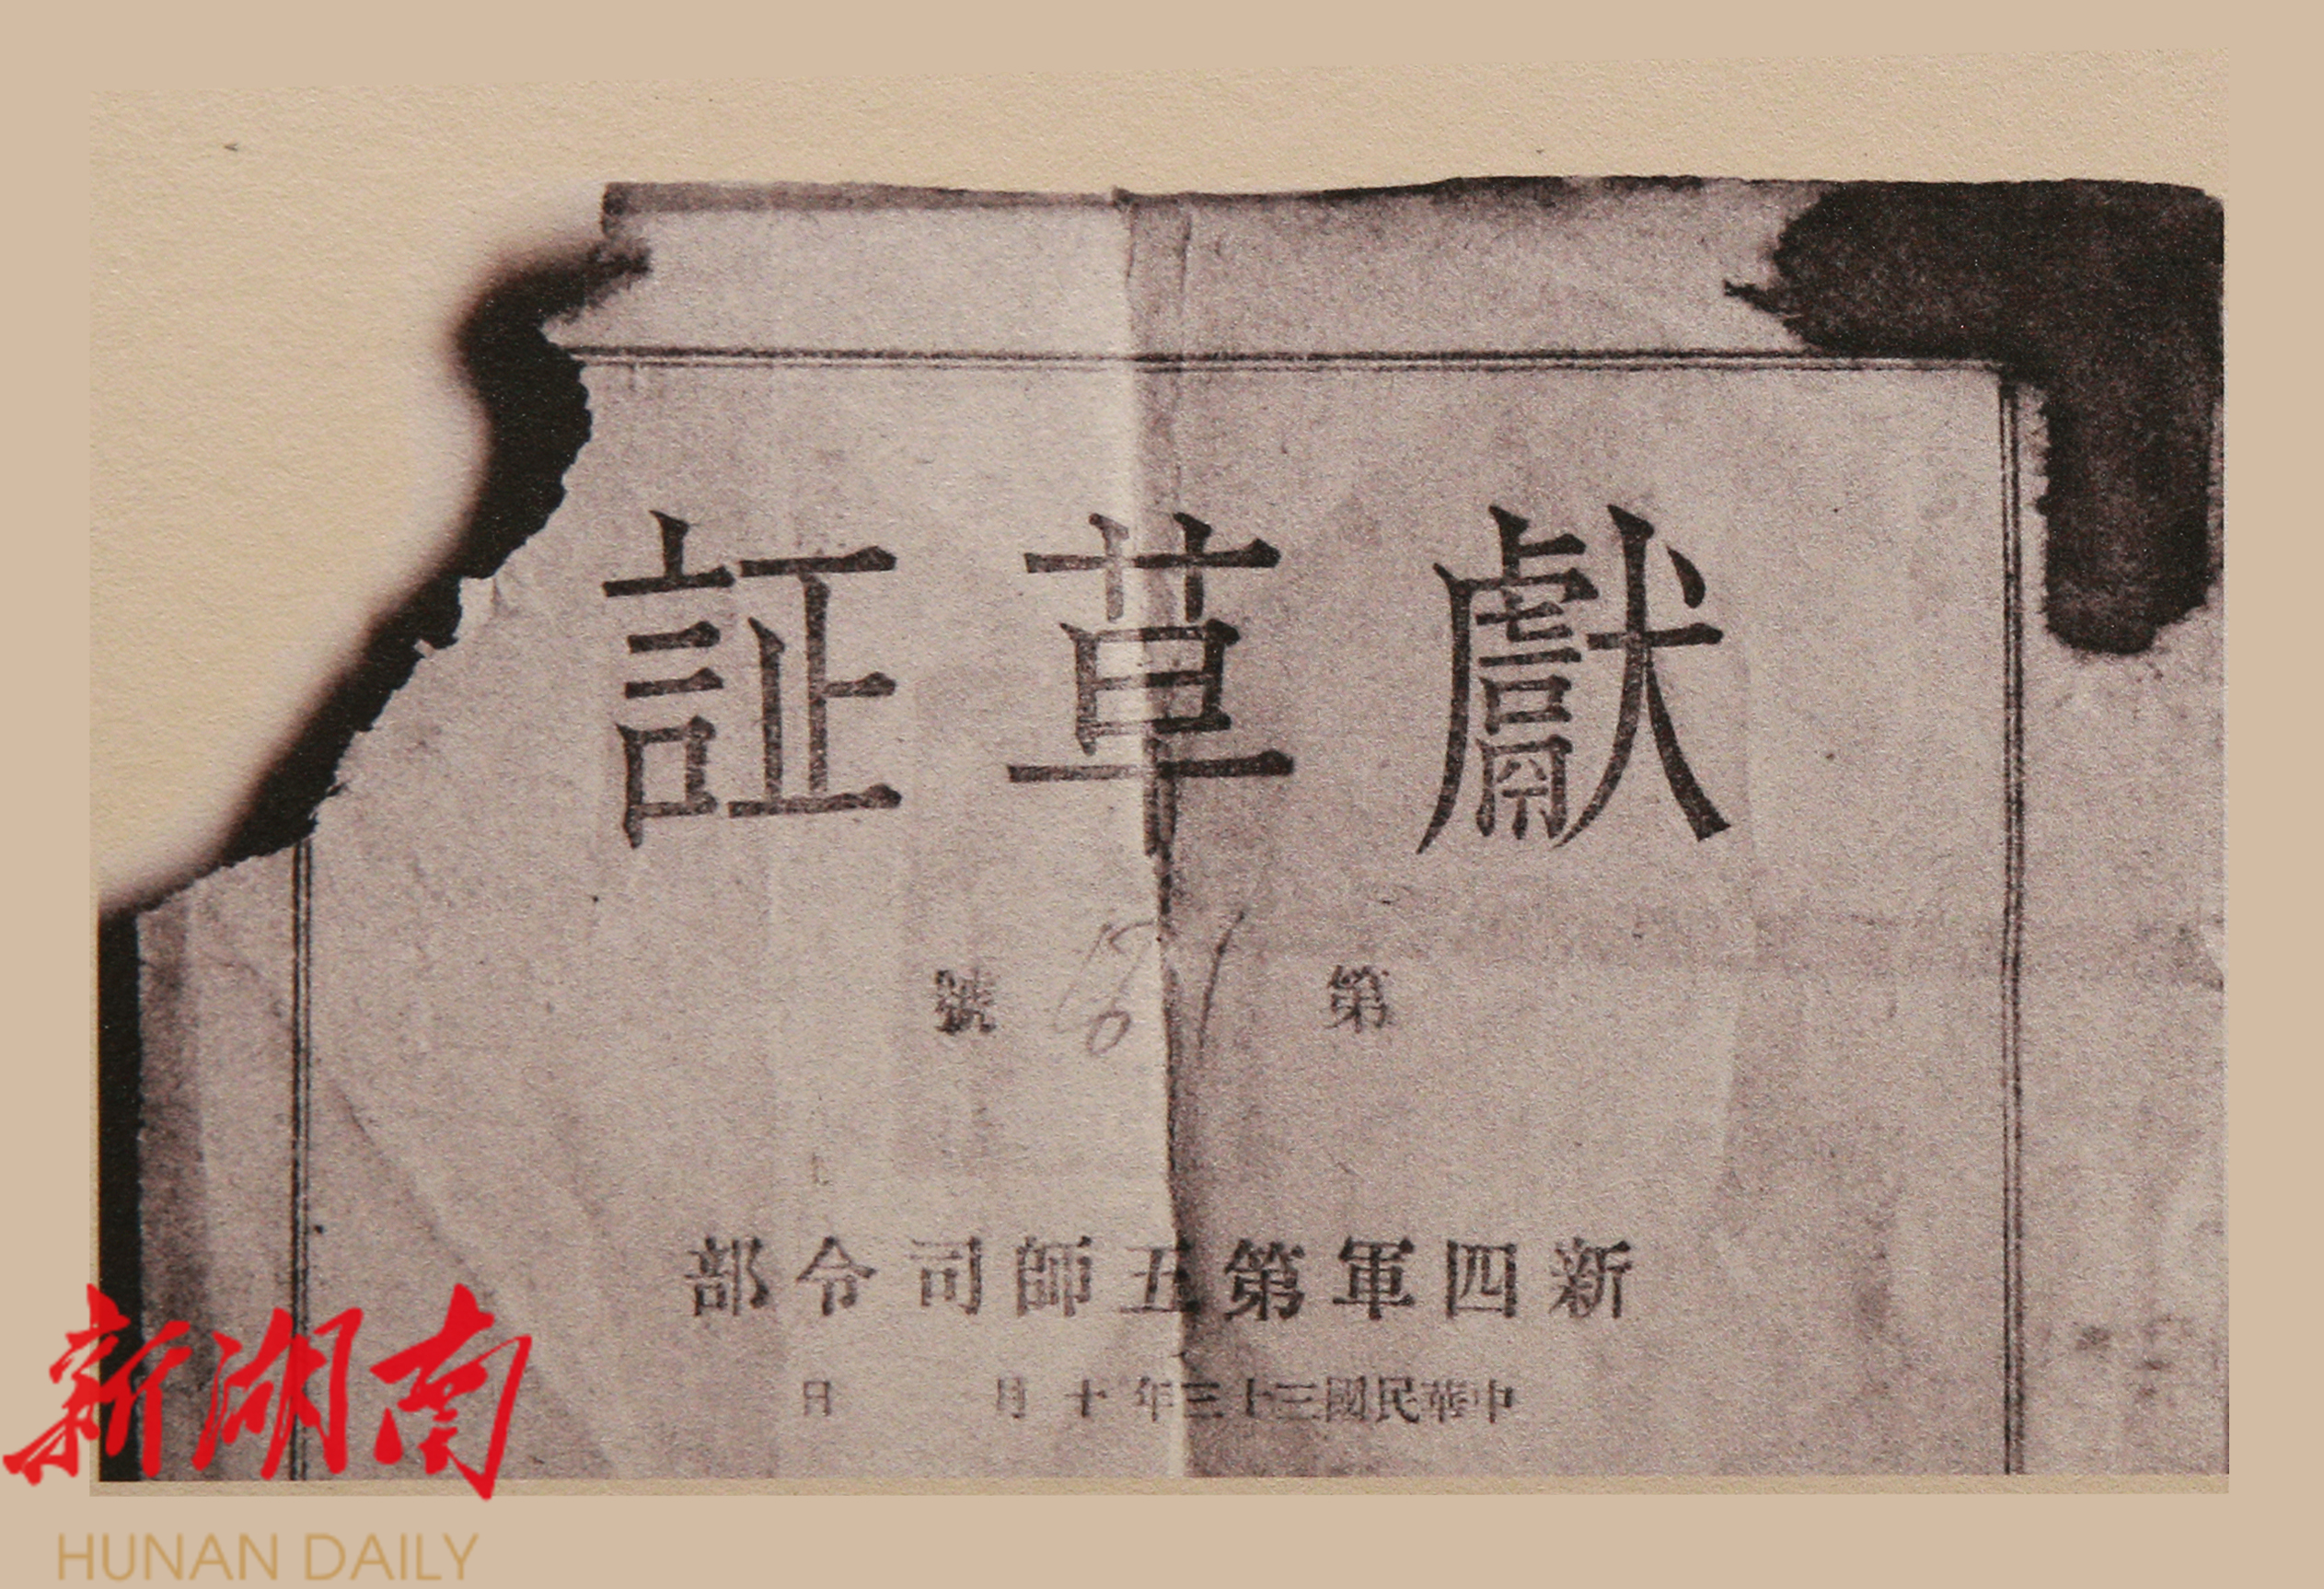 獻草証
第 號
新四軍第五師司令部
中華民國三十三年十月 日
新湖南
HUNAN DAILY